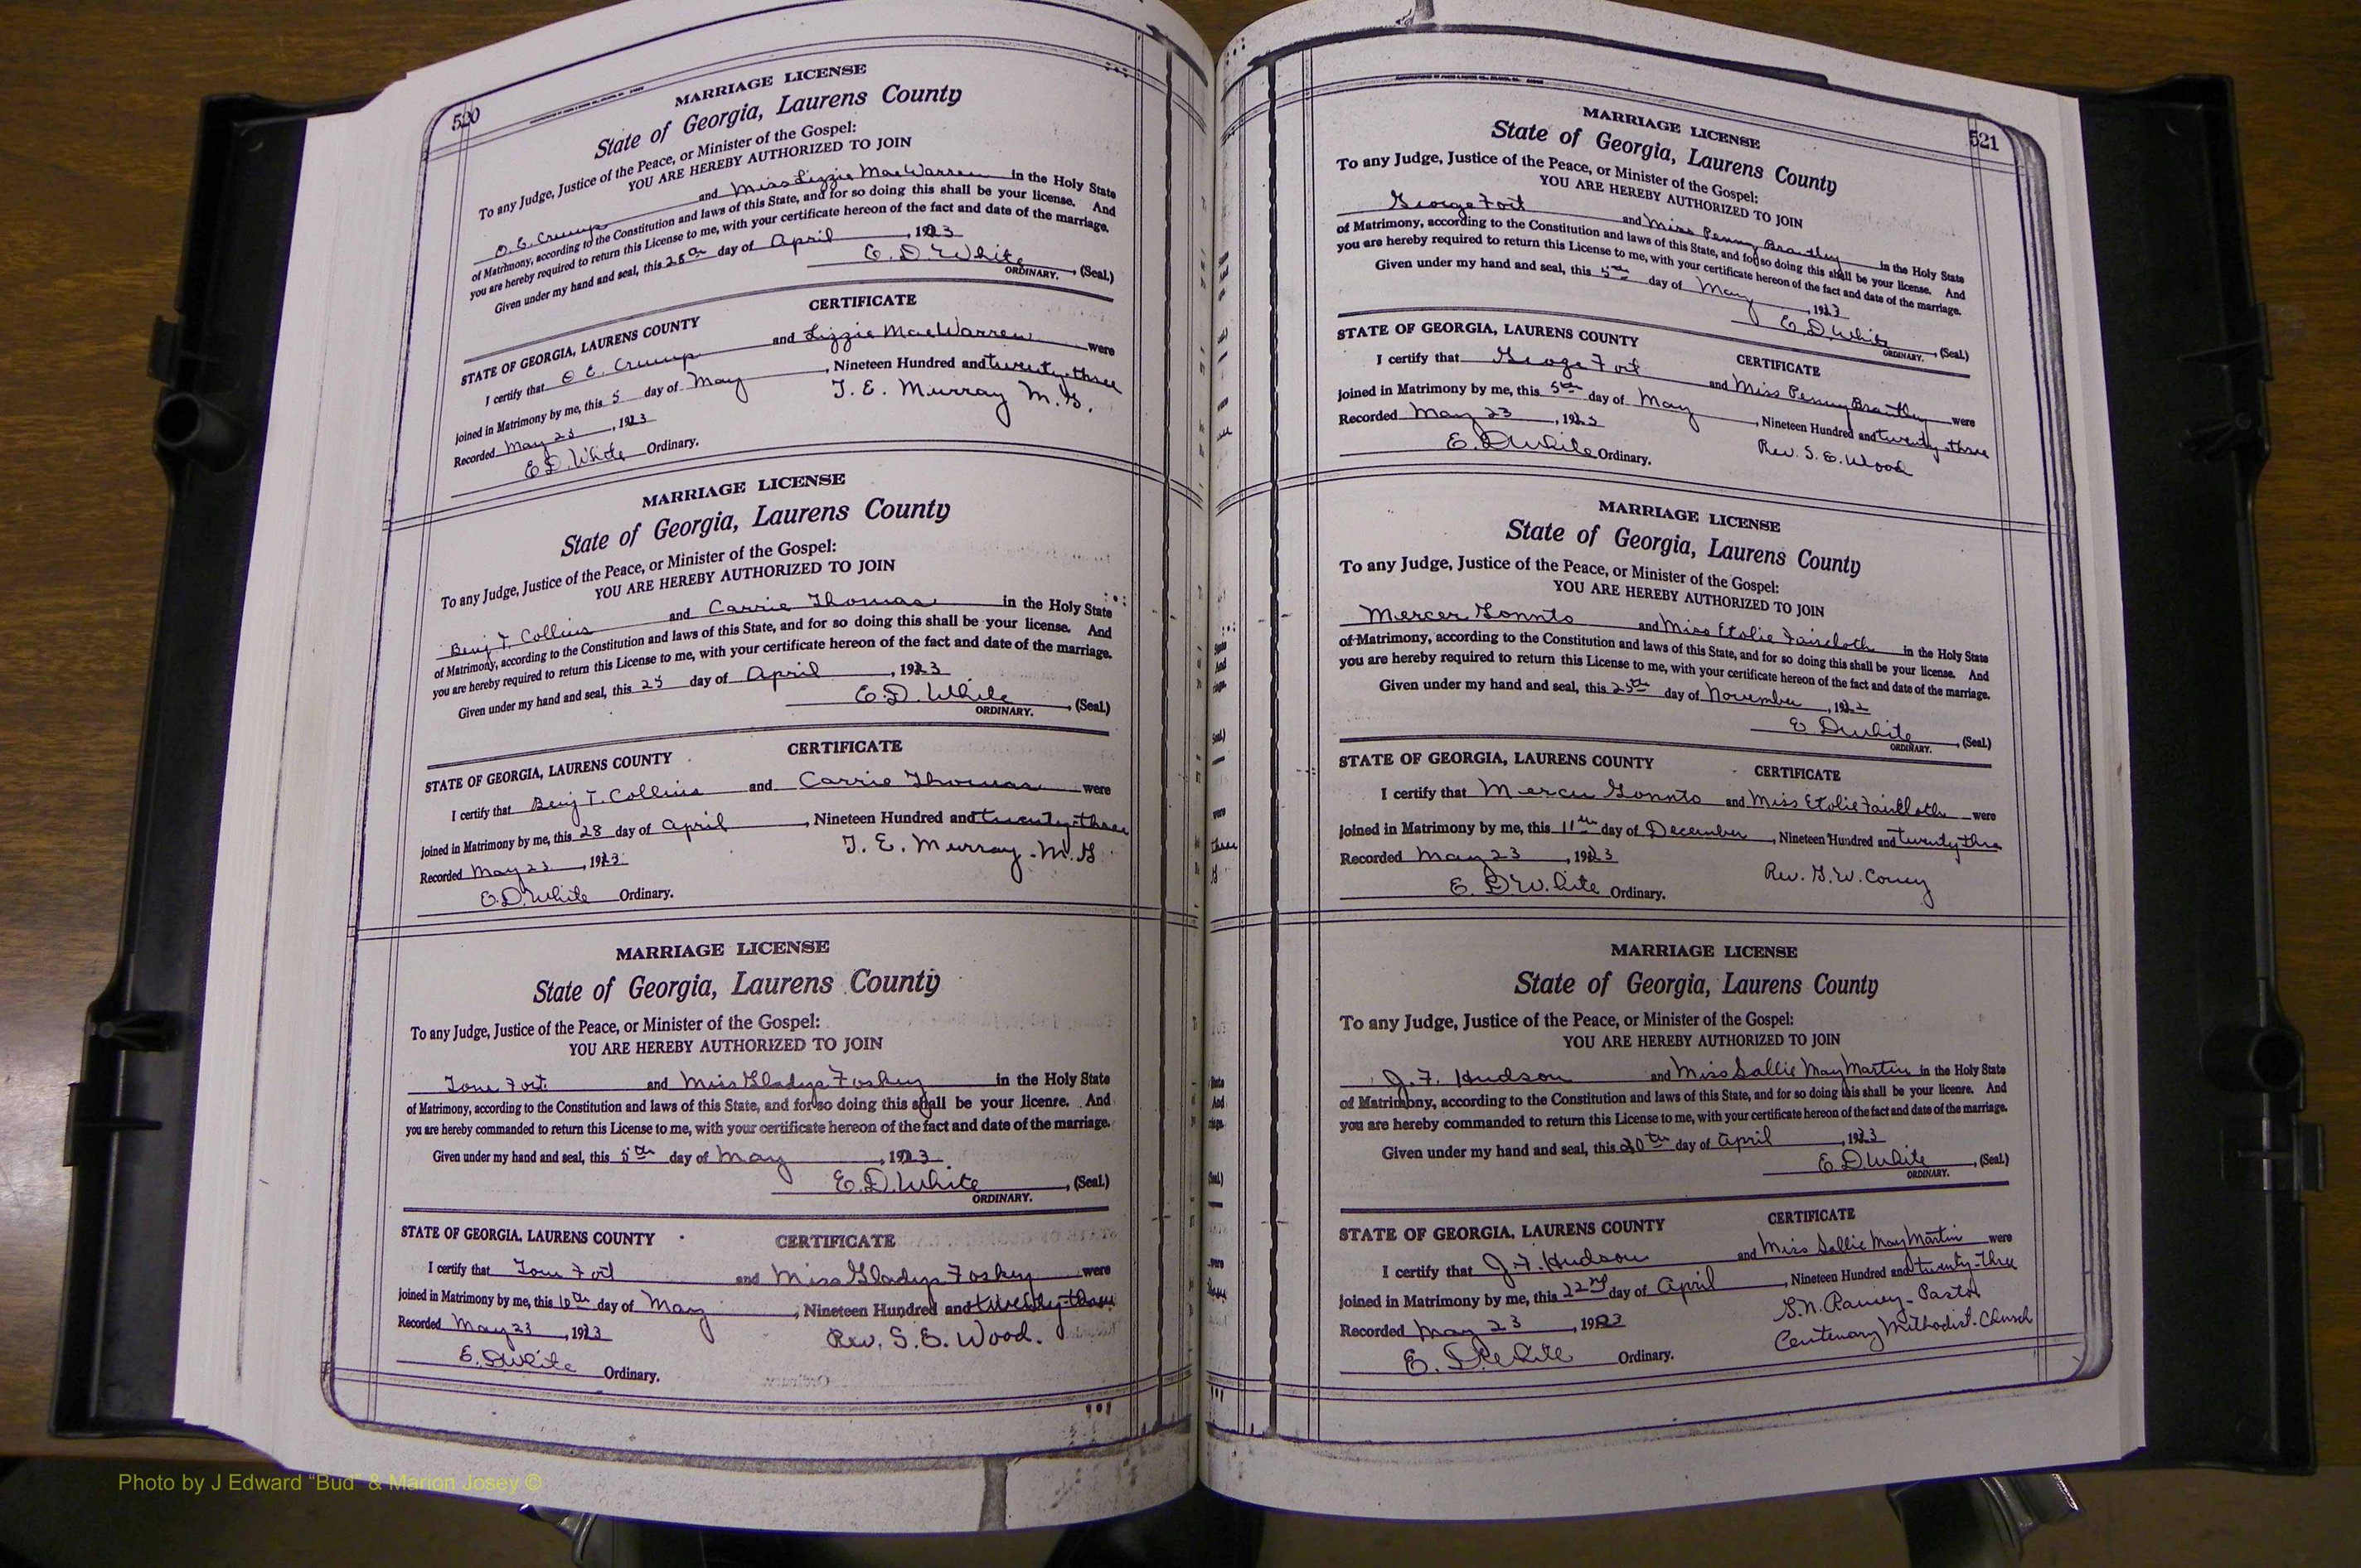 520
MARRIAGE LICENSE
State of Georgia, Laurens County
To any Judge, Justice of the Peace, or Minister of the Gospel:
YOU ARE HEREBY AUTHORIZED TO JOIN
O. E. Crump and Miss Lizzie Mae Warren in the Holy State
of Matrimony, according to the Constitution and laws of this State, and for so doing this shall be your license. And
you are hereby required to return this License to me, with your certificate hereon of the fact and date of the marriage.
Given under my hand and seal, this 28th day of April, 1923
E. D. White, (Seal.)
ORDINARY.
CERTIFICATE
STATE OF GEORGIA, LAURENS COUNTY
I certify that O. E. Crump and Lizzie Mae Warren were
joined in Matrimony by me, this 5 day of May, Nineteen Hundred and twenty-three
Recorded May 23, 1923 T. E. Murray M. G.
E. D. White Ordinary.
MARRIAGE LICENSE
State of Georgia, Laurens County
To any Judge, Justice of the Peace, or Minister of the Gospel:
YOU ARE HEREBY AUTHORIZED TO JOIN
Benj. T. Collins and Carrie Thomas in the Holy State
of Matrimony, according to the Constitution and laws of this State, and for so doing this shall be your license. And
you are hereby required to return this License to me, with your certificate hereon of the fact and date of the marriage.
Given under my hand and seal, this day of April, 1923
E. D. White, (Seal.)
ORDINARY.
CERTIFICATE
STATE OF GEORGIA, LAURENS COUNTY
I certify that Benj T. Collins and Carrie Thomas were
joined in Matrimony by me, this 28 day of April, Nineteen Hundred and twenty-three
Recorded May 23, 1923 T. E. Murray. M. G
E. D. White Ordinary.
MARRIAGE LICENSE
State of Georgia, Laurens County
To any Judge, Justice of the Peace, or Minister of the Gospel:
YOU ARE HEREBY AUTHORIZED TO JOIN
Tom Fort and Miss Gladys Foskey in the Holy State
of Matrimony, according to the Constitution and laws of this State, and for so doing this shall be your license. And
you are hereby commanded to return this License to me, with your certificate hereon of the fact and date of the marriage.
Given under my hand and seal, this 5th day of May, 1923
E. D. White, (Seal.)
ORDINARY.
STATE OF GEORGIA, LAURENS COUNTY CERTIFICATE
I certify that Tom Fort and Miss Gladys Foskey were
joined in Matrimony by me, this day of May, Nineteen Hundred and twenty-three
Recorded May 23, 1923 Rev. S. E. Wood.
E. D. White Ordinary.
521
MARRIAGE LICENSE
State of Georgia, Laurens County
To any Judge, Justice of the Peace, or Minister of the Gospel:
YOU ARE HEREBY AUTHORIZED TO JOIN
George Fort and Miss Penny Brantley in the Holy State
of Matrimony, according to the Constitution and laws of this State, and for so doing this shall be your license. And
you are hereby required to return this License to me, with your certificate hereon of the fact and date of the marriage.
Given under my hand and seal, this 5th day of May, 1923
E. D. White, (Seal.)
ORDINARY.
STATE OF GEORGIA, LAURENS COUNTY CERTIFICATE
I certify that George Fort and Miss Penny Brantley were
joined in Matrimony by me, this 5th day of May, Nineteen Hundred and twenty-three
Recorded May 23, 1923 Rev. S. E. Wood
E. D. White Ordinary.
MARRIAGE LICENSE
State of Georgia, Laurens County
To any Judge, Justice of the Peace, or Minister of the Gospel:
YOU ARE HEREBY AUTHORIZED TO JOIN
Mercer Gonnto and Miss Etolie Faircloth in the Holy State
of Matrimony, according to the Constitution and laws of this State, and for so doing this shall be your license. And
you are hereby required to return this License to me, with your certificate hereon of the fact and date of the marriage.
Given under my hand and seal, this 25th day of November, 1922
E. D. White, (Seal.)
ORDINARY.
STATE OF GEORGIA, LAURENS COUNTY CERTIFICATE
I certify that Mercer Gonnto and Miss Etolie Faircloth were
joined in Matrimony by me, this 11th day of December, Nineteen Hundred and twenty three
Recorded May 23, 1923 Rev. G. W.
E. D. White Ordinary.
MARRIAGE LICENSE
State of Georgia, Laurens County
To any Judge, Justice of the Peace, or Minister of the Gospel:
YOU ARE HEREBY AUTHORIZED TO JOIN
J. F. Hudson and Miss Sallie May Martin in the Holy State
of Matrimony, according to the Constitution and laws of this State, and for so doing this shall be your license. And
you are hereby commanded to return this License to me, with your certificate hereon of the fact and date of the marriage.
Given under my hand and seal, this 20th day of April, 1923
E. D. White, (Seal.)
ORDINARY.
STATE OF GEORGIA, LAURENS COUNTY CERTIFICATE
I certify that J. F. Hudson and Miss Sallie May Martin were
joined in Matrimony by me, this 22nd day of April, Nineteen Hundred and twenty-three
Recorded May 23, 1923 Pastor
E. D. White Ordinary. Centenary Methodist. Church
Photo by J Edward “Bud” & Marion Josey ©